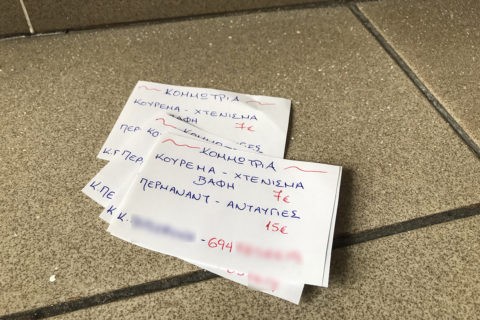 ΚΟΜΜΩΤΡΙΑ
ΚΟΥΡΕΜΑ - ΧΤΕΝΙΣΜΑ
ΒΑΦΗ 7€
ΠΕΡ
ΚΟΜΜΩΤΡΙΑ
ΚΟΥΡΕΜΑ - ΧΤΕΝΙΣΜΑ
ΒΑΦΗ 7€
ΠΕΡΜΑΝΑΝΤ - ΑΝΤΑΥΓΙΕΣ
15€
Κ.
- 694